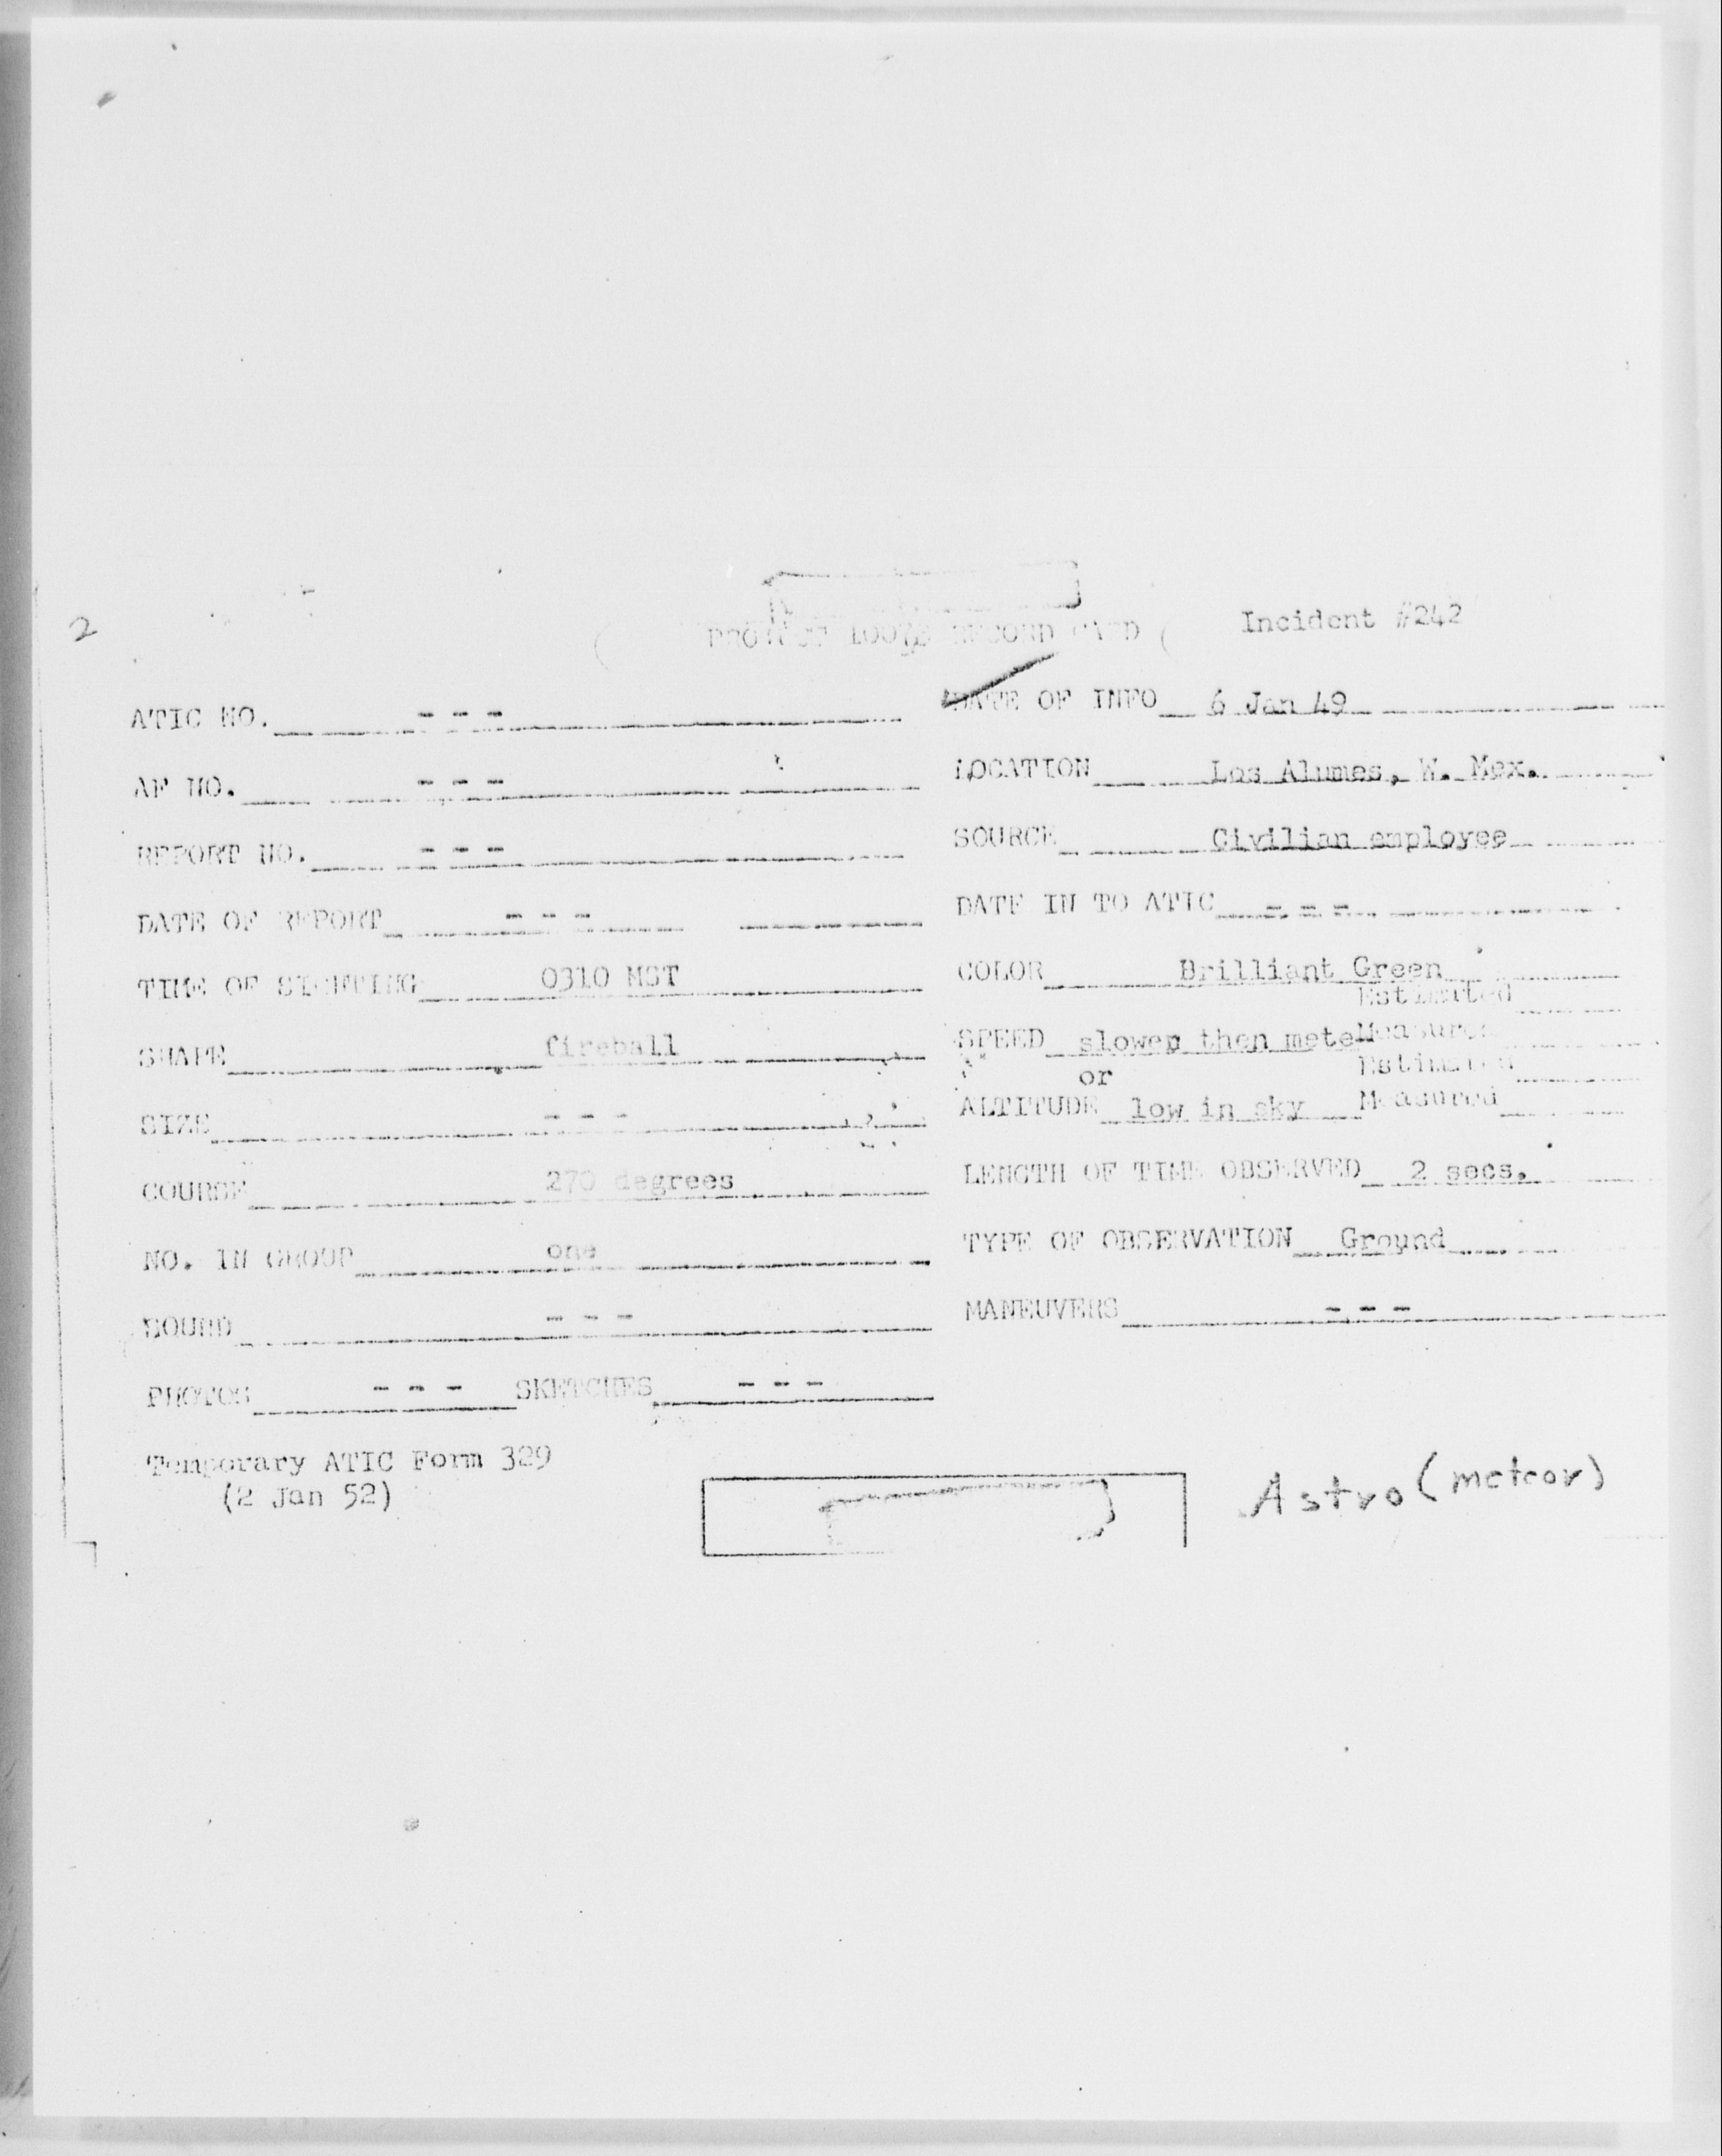 2
Incident #242
PROJECT 10073 RECORD CARD
ATIC NO. - - -
DATE OF INFO 6 Jan 49
AF NO. - - -
LOCATION Los Alumes, W. Mex.
REPORT NO. - - -
SOURCE Civilian employee
DATE OF REPORT - - -
DATE IN TO ATIC - - -
TIME OF SIGHTING 0310 MST
COLOR Brilliant Green
Estimated
SHAPE fireball
SPEED slower then mete Measured
or
Estimated
SIZE - - -
ALTITUDE low in sky Measured
COURSE 270 degrees
LENGTH OF TIME OBSERVED 2 secs.
NO. IN GROUP one
TYPE OF OBSERVATION Ground
SOUND - - -
MANEUVERS - - -
PHOTOS - - - SKETCHES - - -
Temporary ATIC Form 329
(2 Jan 52)
Astro (meteor)